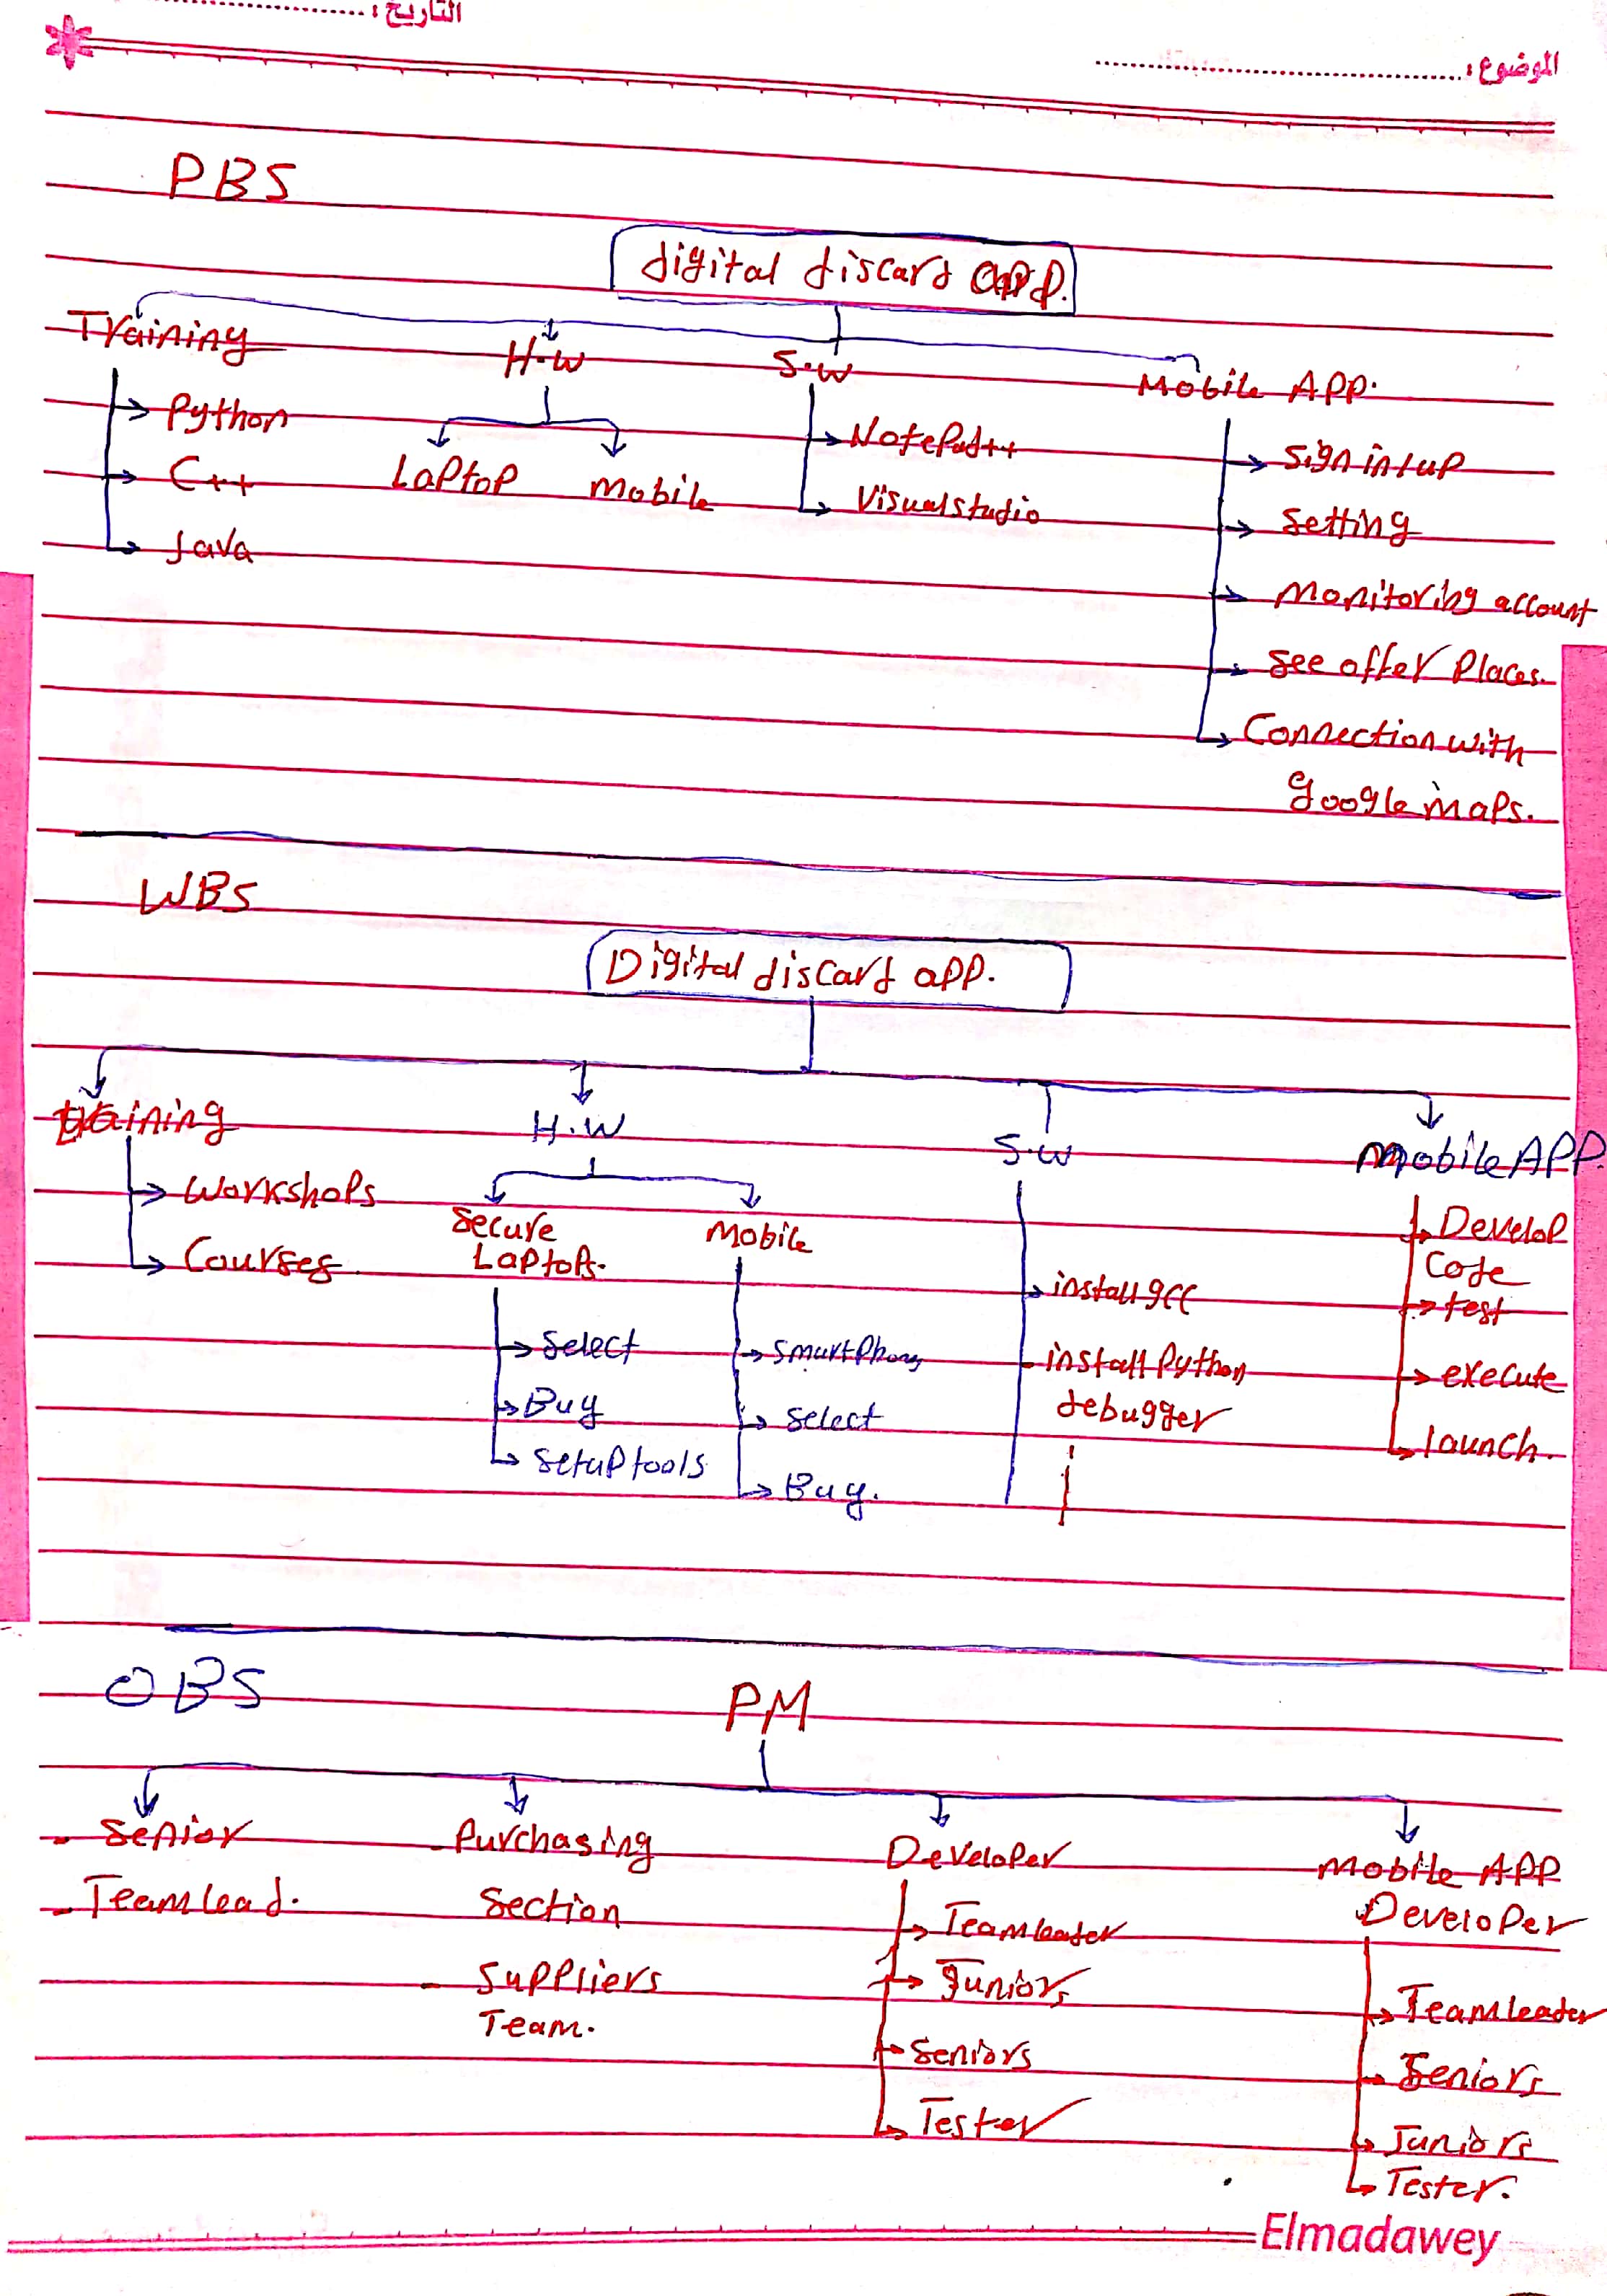 التاريخ :
الموضوع :
PBS
digital discard app.
Training
H.W
S.W
Mobile App.
Python
C++
Java
Laptop
Mobile
NotePad++
Visual studio
Sign in/up
Setting
Monitoring account
See offer Places.
Connection with
google maps.
WBS
Digital discard app.
training
H.W
S.W
Mobile APP.
Workshops
Courses
Secure
Laptops.
Select
Buy
Setup tools
Mobile
Smart Phone
Select
Buy.
install gcc
install Python
debugger
Develop
Code
test
execute
launch.
OBS
PM
- Senior
- Team lead.
- Purchasing
Section
- Suppliers
Team.
Developer
Team leader
Juniors
Seniors
Tester
Mobile APP
Developer
Team leader
Seniors
Juniors
Tester.
Elmadawey